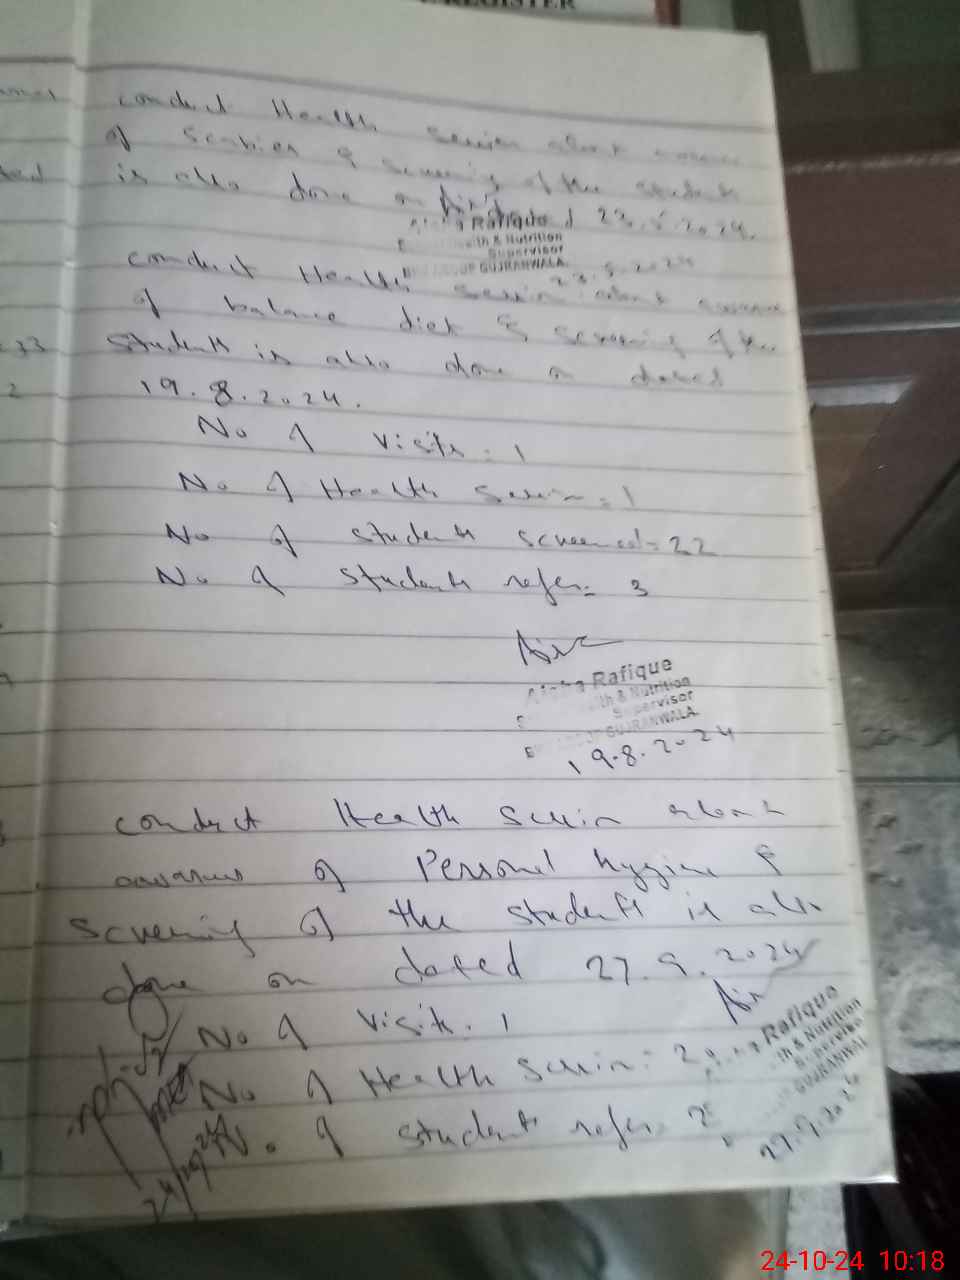 REGISTER
conduct Health session about
of scabies & screening of the students
is also done on dated 23.5.2024.
Rafique
Health & Nutrition
Supervisor
GUJRANWALA.
23.5.2024
conduct Health session about
of balance diet & screening of the
students is also done on dated
19.8.2024.
No of visits = 1
No of Health session = 1
No of students screened = 22
No of students refer = 3
Rafique
Health & Nutrition
Supervisor
GUJRANWALA.
19.8.2024
conduct Health session about
of Personal hygine &
screening of the students is also
done on dated 27.9.2024
No of visit = 1
No of Health session = 2
No. of students refer = 2
Rafique
th & Nutrition
Supervisor
GUJRANWAL
27.9.2024
24-10-24 10:18